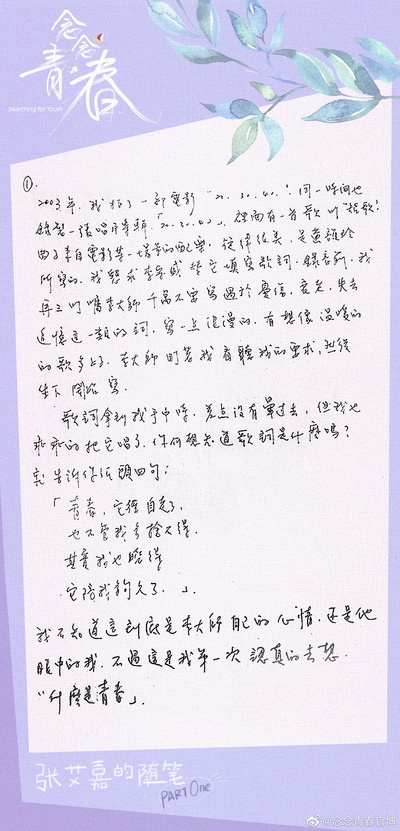 念念
青春
Searching for Youth
①.
2003年, 我拍了一部電影 "20.30.40."! 同一時间也
錄製一張唱片專輯「20.30.40」. 裡面有一首歌叫"捉歌!
曲子来自電影某一場景的配樂. 旋律優美, 是黃韻玲
所寫的. 我要求李宗盛替它填寫歌詞. 錄音前, 我
再三叮嚀李大師千萬不要寫過於憂傷, 哀怨, 失去
追憶這一類的詞, 寫一点浪漫的. 有想像温暖的
的歌多好. 李大師盯著我看聽我的要求, 然後
坐下開始寫.
歌詞拿到我手中時, 差点沒有暈过去, 但我也
乖乖的把它唱了. 你们想知道歌詞是什麼嗎?
就告訴你们頭四句:
「青春, 它徑自走了,
也不管我多捨不得,
其實我也曉得
它陪我夠久了. 」.
我不知道這到底是李大師自己的心情, 还是他
眼中的我. 不過這是我第一次認真的去想.
"什麼是青春」.
张艾嘉的随笔
PART One
@念念青春官博